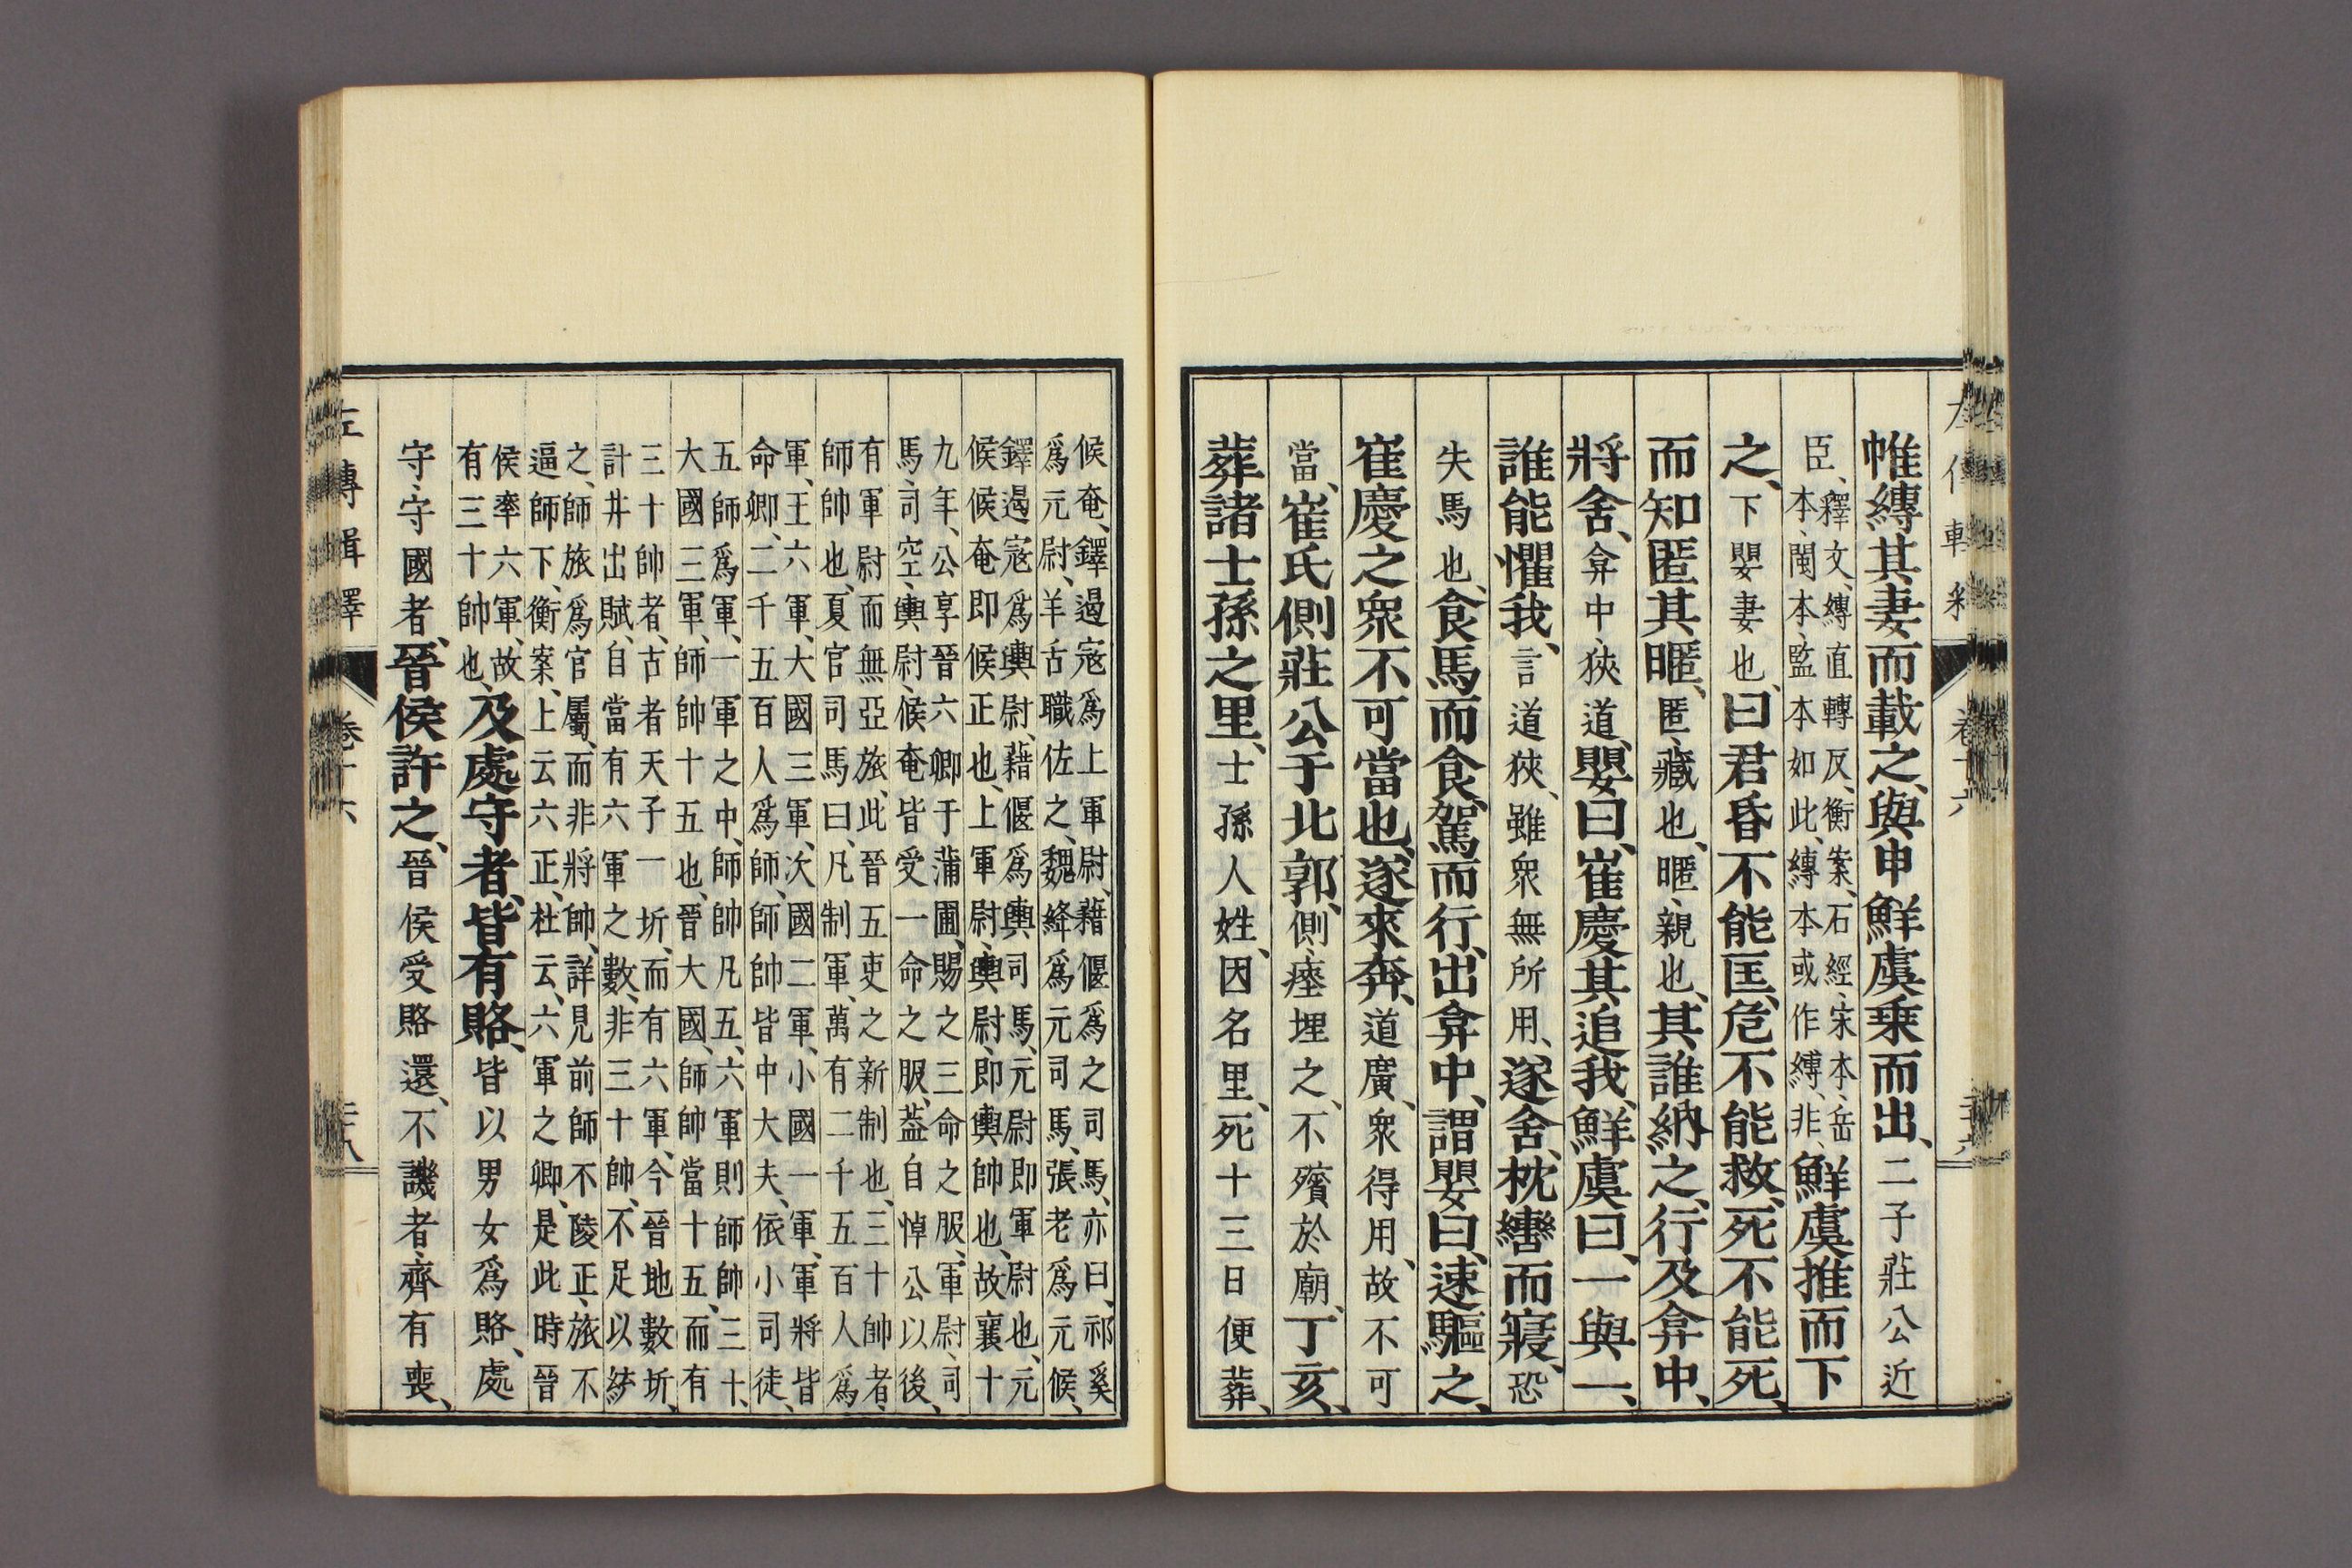 帷縳其妻而載之、與申鮮虞乗而出、二子莊公近
臣、釋文、縳直轉反、衡案、石經宋本岳
本閩本監本如此、縳本或作縛、非、鮮虞推而下
之、下嬰妻也、曰君昏不能匡、危不能救、死不能死、
而知匿其暱、匿、藏也、暱、親也、其誰納之、行及弇中、
將舍、弇中、狹道、嬰曰、崔慶其追我、鮮虞曰、一與一、
誰能懼我、言道狹、雖衆無所用、遂舍、枕轡而寢、恐
失馬也、食馬而食、駕而行、出弇中、謂嬰曰、速驅之、
崔慶之衆不可當也、遂來奔、道廣、衆得用、故不可
當、崔氏側莊公于北郭、側、瘞埋之、不殯於廟、丁亥、
葬諸士孫之里、士孫人姓、因名里、死十三日便葬、
候奄、鐸遏寇爲上軍尉、藉偃爲之司馬、亦曰、祁奚
爲元尉、羊舌職佐之、魏絳爲元司馬、張老爲元候、
鐸遏寇爲輿尉、藉偃爲輿司馬、元尉即軍尉也、元
候候奄即候正也、上軍尉、輿尉、即輿帥也、故襄十
九年、公享晉六卿于蒲圃、賜之三命之服、軍尉、司
馬、司空、輿尉、候奄皆受一命之服、蓋自悼公以後、
有軍尉而無亞旅、此晉五吏之新制也、三十帥者、
師帥也、夏官司馬曰、凡制軍、萬有二千五百人爲
軍、王六軍、大國三軍、次國二軍、小國一軍、軍將皆
命卿、二千五百人爲師、師帥皆中大夫、依小司徒、
五師爲軍、一軍之中、師帥凡五、六軍則師帥三十、
大國三軍、師帥十五也、晉大國、師帥當十五、而有
三十帥者、古者天子一圻、而有六軍、今晉地數圻、
計井出賦、自當有六軍之數、非三十帥、不足以統
之、師旅爲官屬、而非將帥、詳見前師不陵正、旅不
逼師下、衡案、上云六正、杜云、六軍之卿、是此時晉
侯率六軍、故
有三十帥也、及處守者、皆有賂、皆以男女爲賂、處
守、守國者、晉侯許之、晉侯受賂還、不譏者、齊有喪、
左傳輯釋 卷十六 三十八